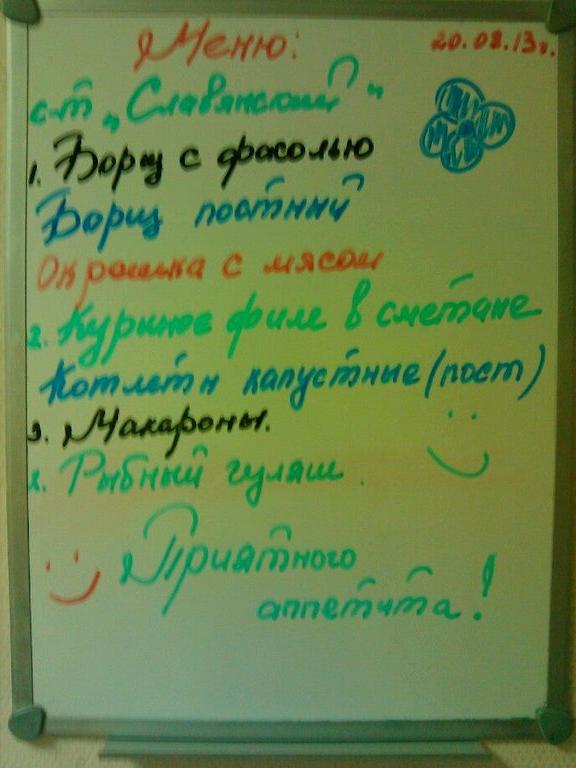 Меню:
20.08.13г.
с-т „Славянский"
1. Борщ с фасолью
Борщ постный
Окрошка с мясом
2. Куриное филе в сметане
Котлеты капустные (пост)
3. Макароны.
2. Рыбный гуляш
Приятного
аппетита!